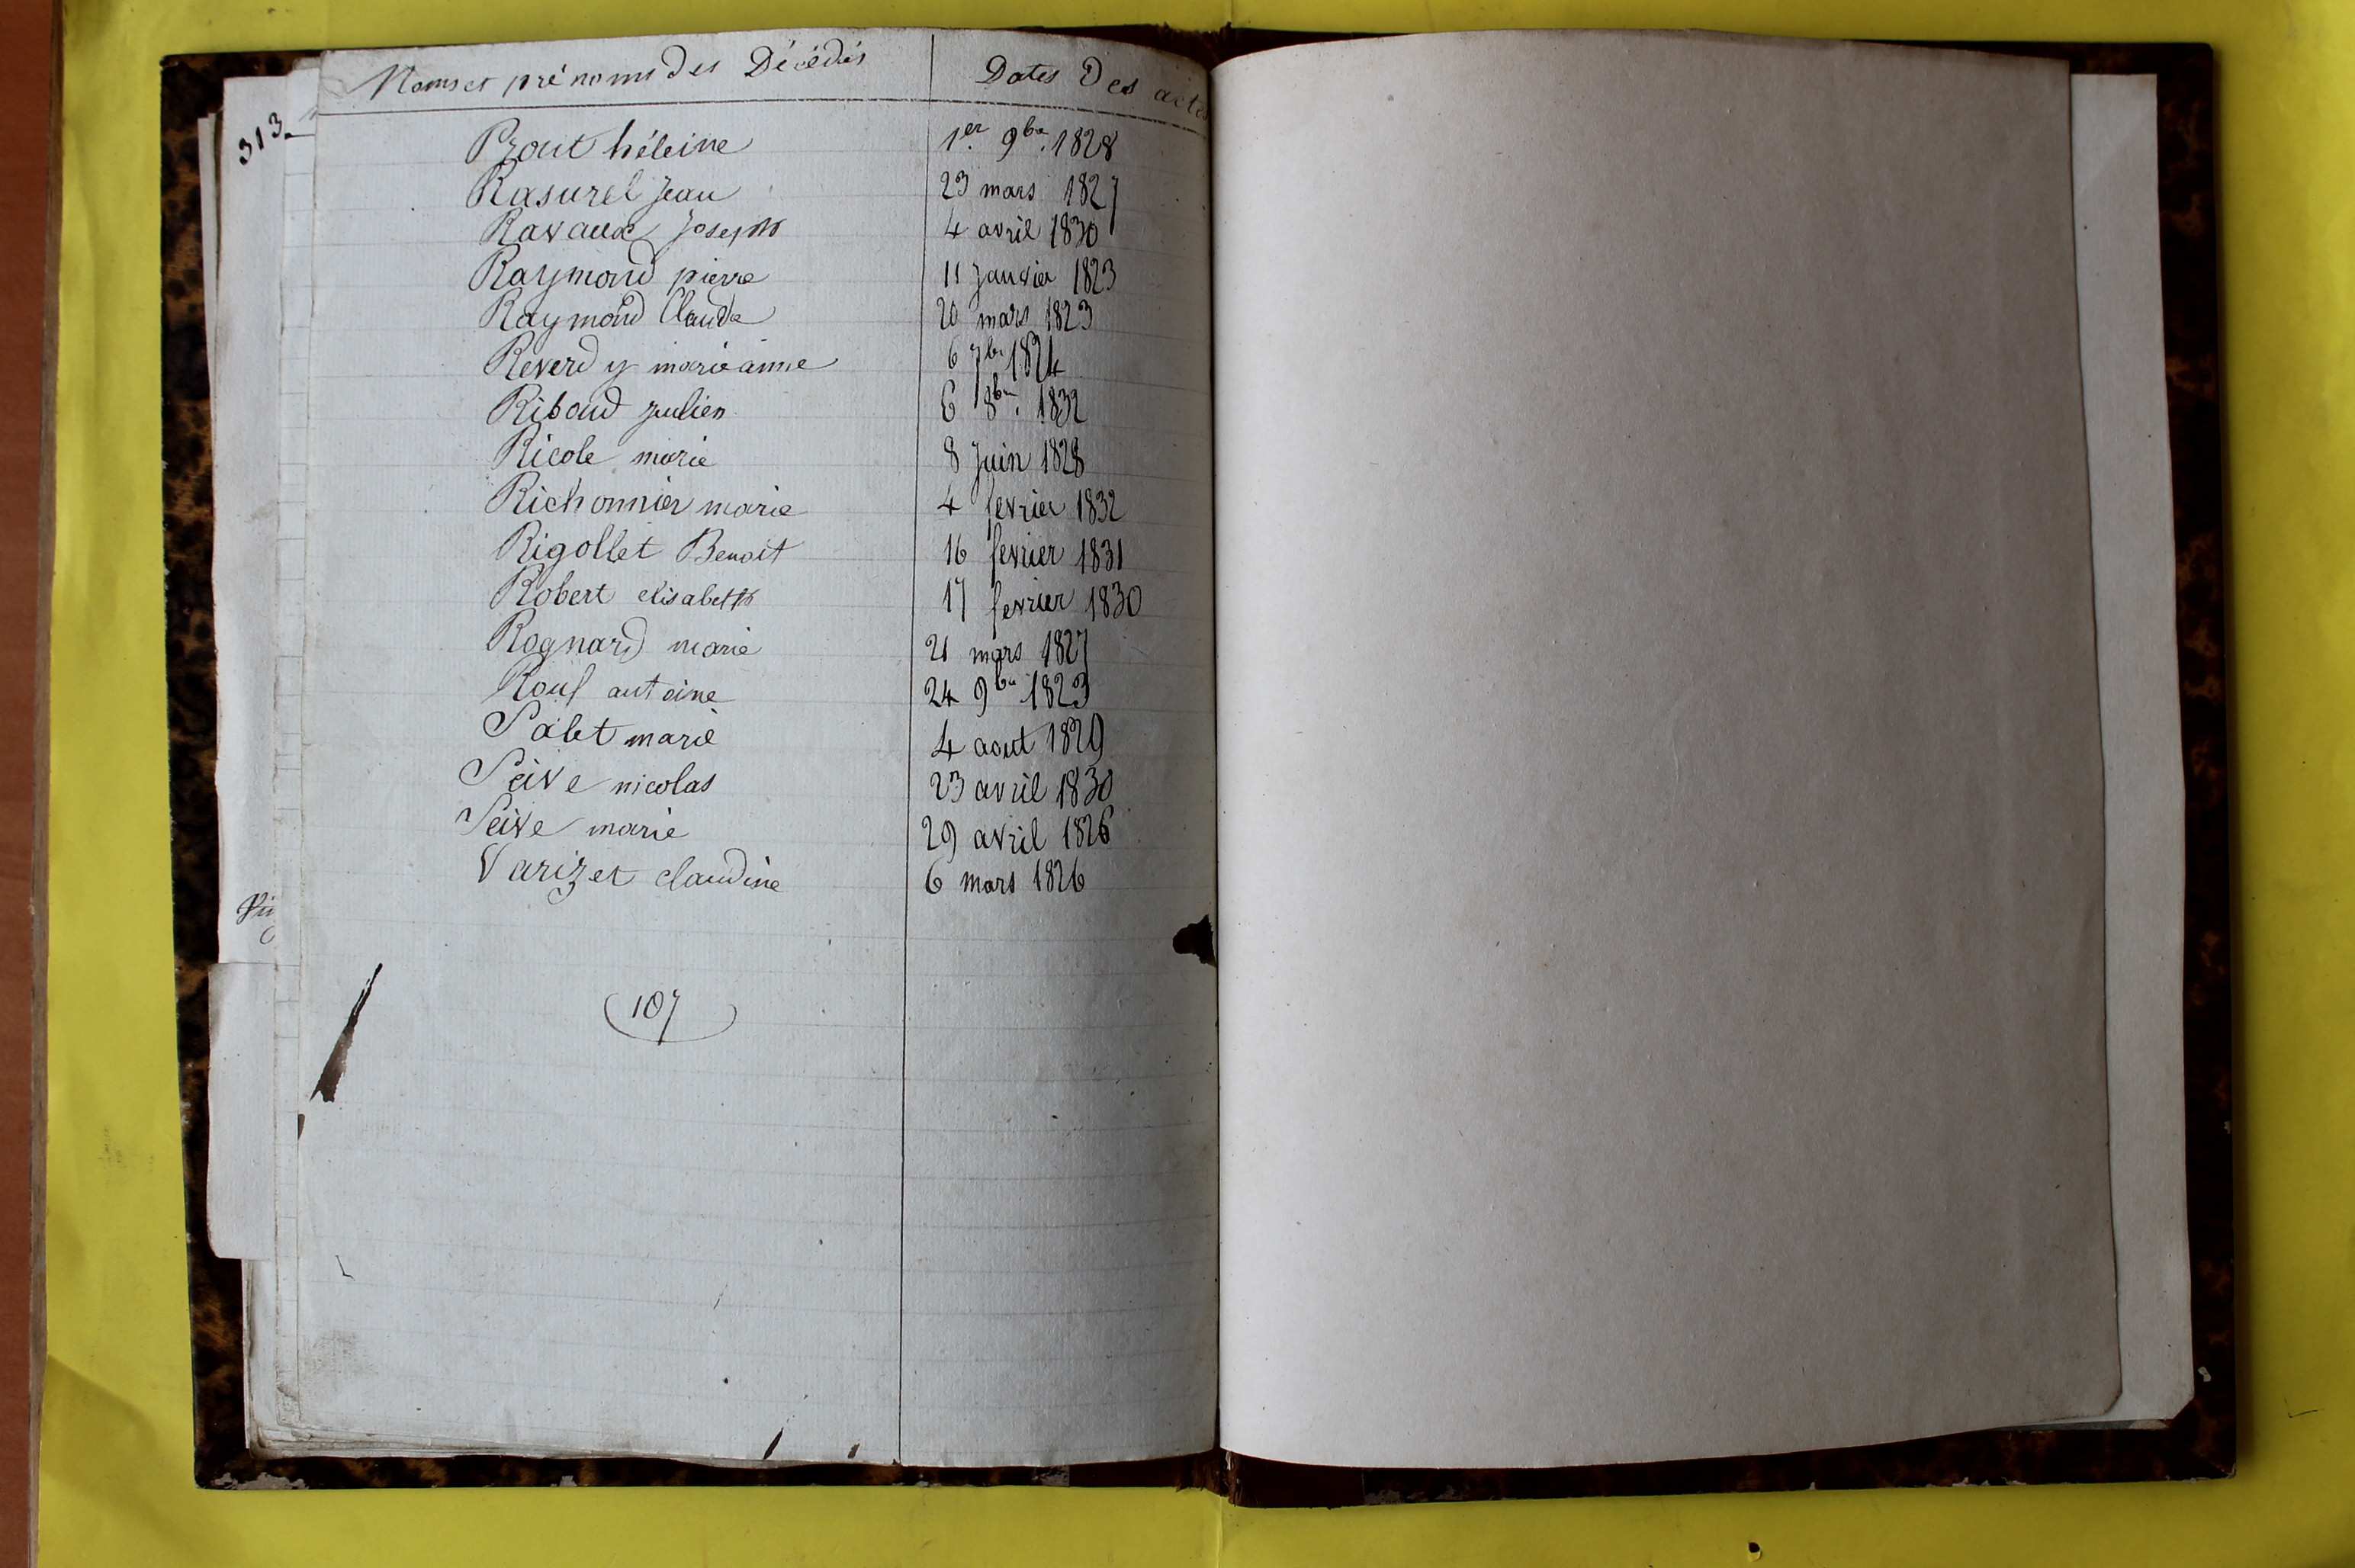 313.
Noms et prénoms des Décédés Dates Des actes
Prout héleine 1er. 9bre. 1828
Rasurel Jean 23 mars 1827
Ravaux Joseph 4 avril 1830
Raymond pierre 11 Janvier 1823
Raymond Claude 20 mars 1823
Reverdy marieanne 6 7bre 1824
Riboud julien 6 8bre. 1832
Ricole marie 8 Juin 1828
Richonnier marie 4 fevrier 1832
Rigollet Benoit 16 fevrier 1831
Robert elisabeth 17 fevrier 1830
Rognard marie 21 mars 1827
Rouf antoine 24 9bre 1823
Salet marie 4 aout 1829
Seive nicolas 23 avril 1830
Seive marie 29 avril 1826
Varizet claudine 6 mars 1826
107